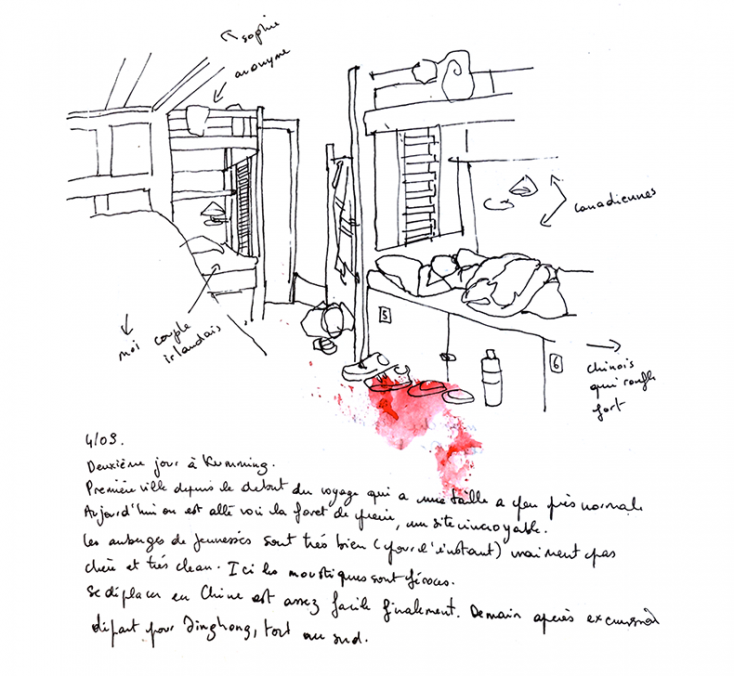 sophie
anonyme
canadiennes
moi
couple
irlandais
5
6
chinois
qui ronfle
fort
4/03.
Deuxième jour à Kumming.
Première ville depuis le debut du voyage qui a une taille a peu près normale
Aujourd'hui on est allé voir la foret de pierre, un site incroyable.
Les auberges de jeunesses sont très bien (pour l'instant) vraiment pas
chère et très clean. Ici les moustiques sont féroces.
Se déplacer en Chine est assez facile finalement. Demain après excursion
départ pour Jinghong, tout au sud.